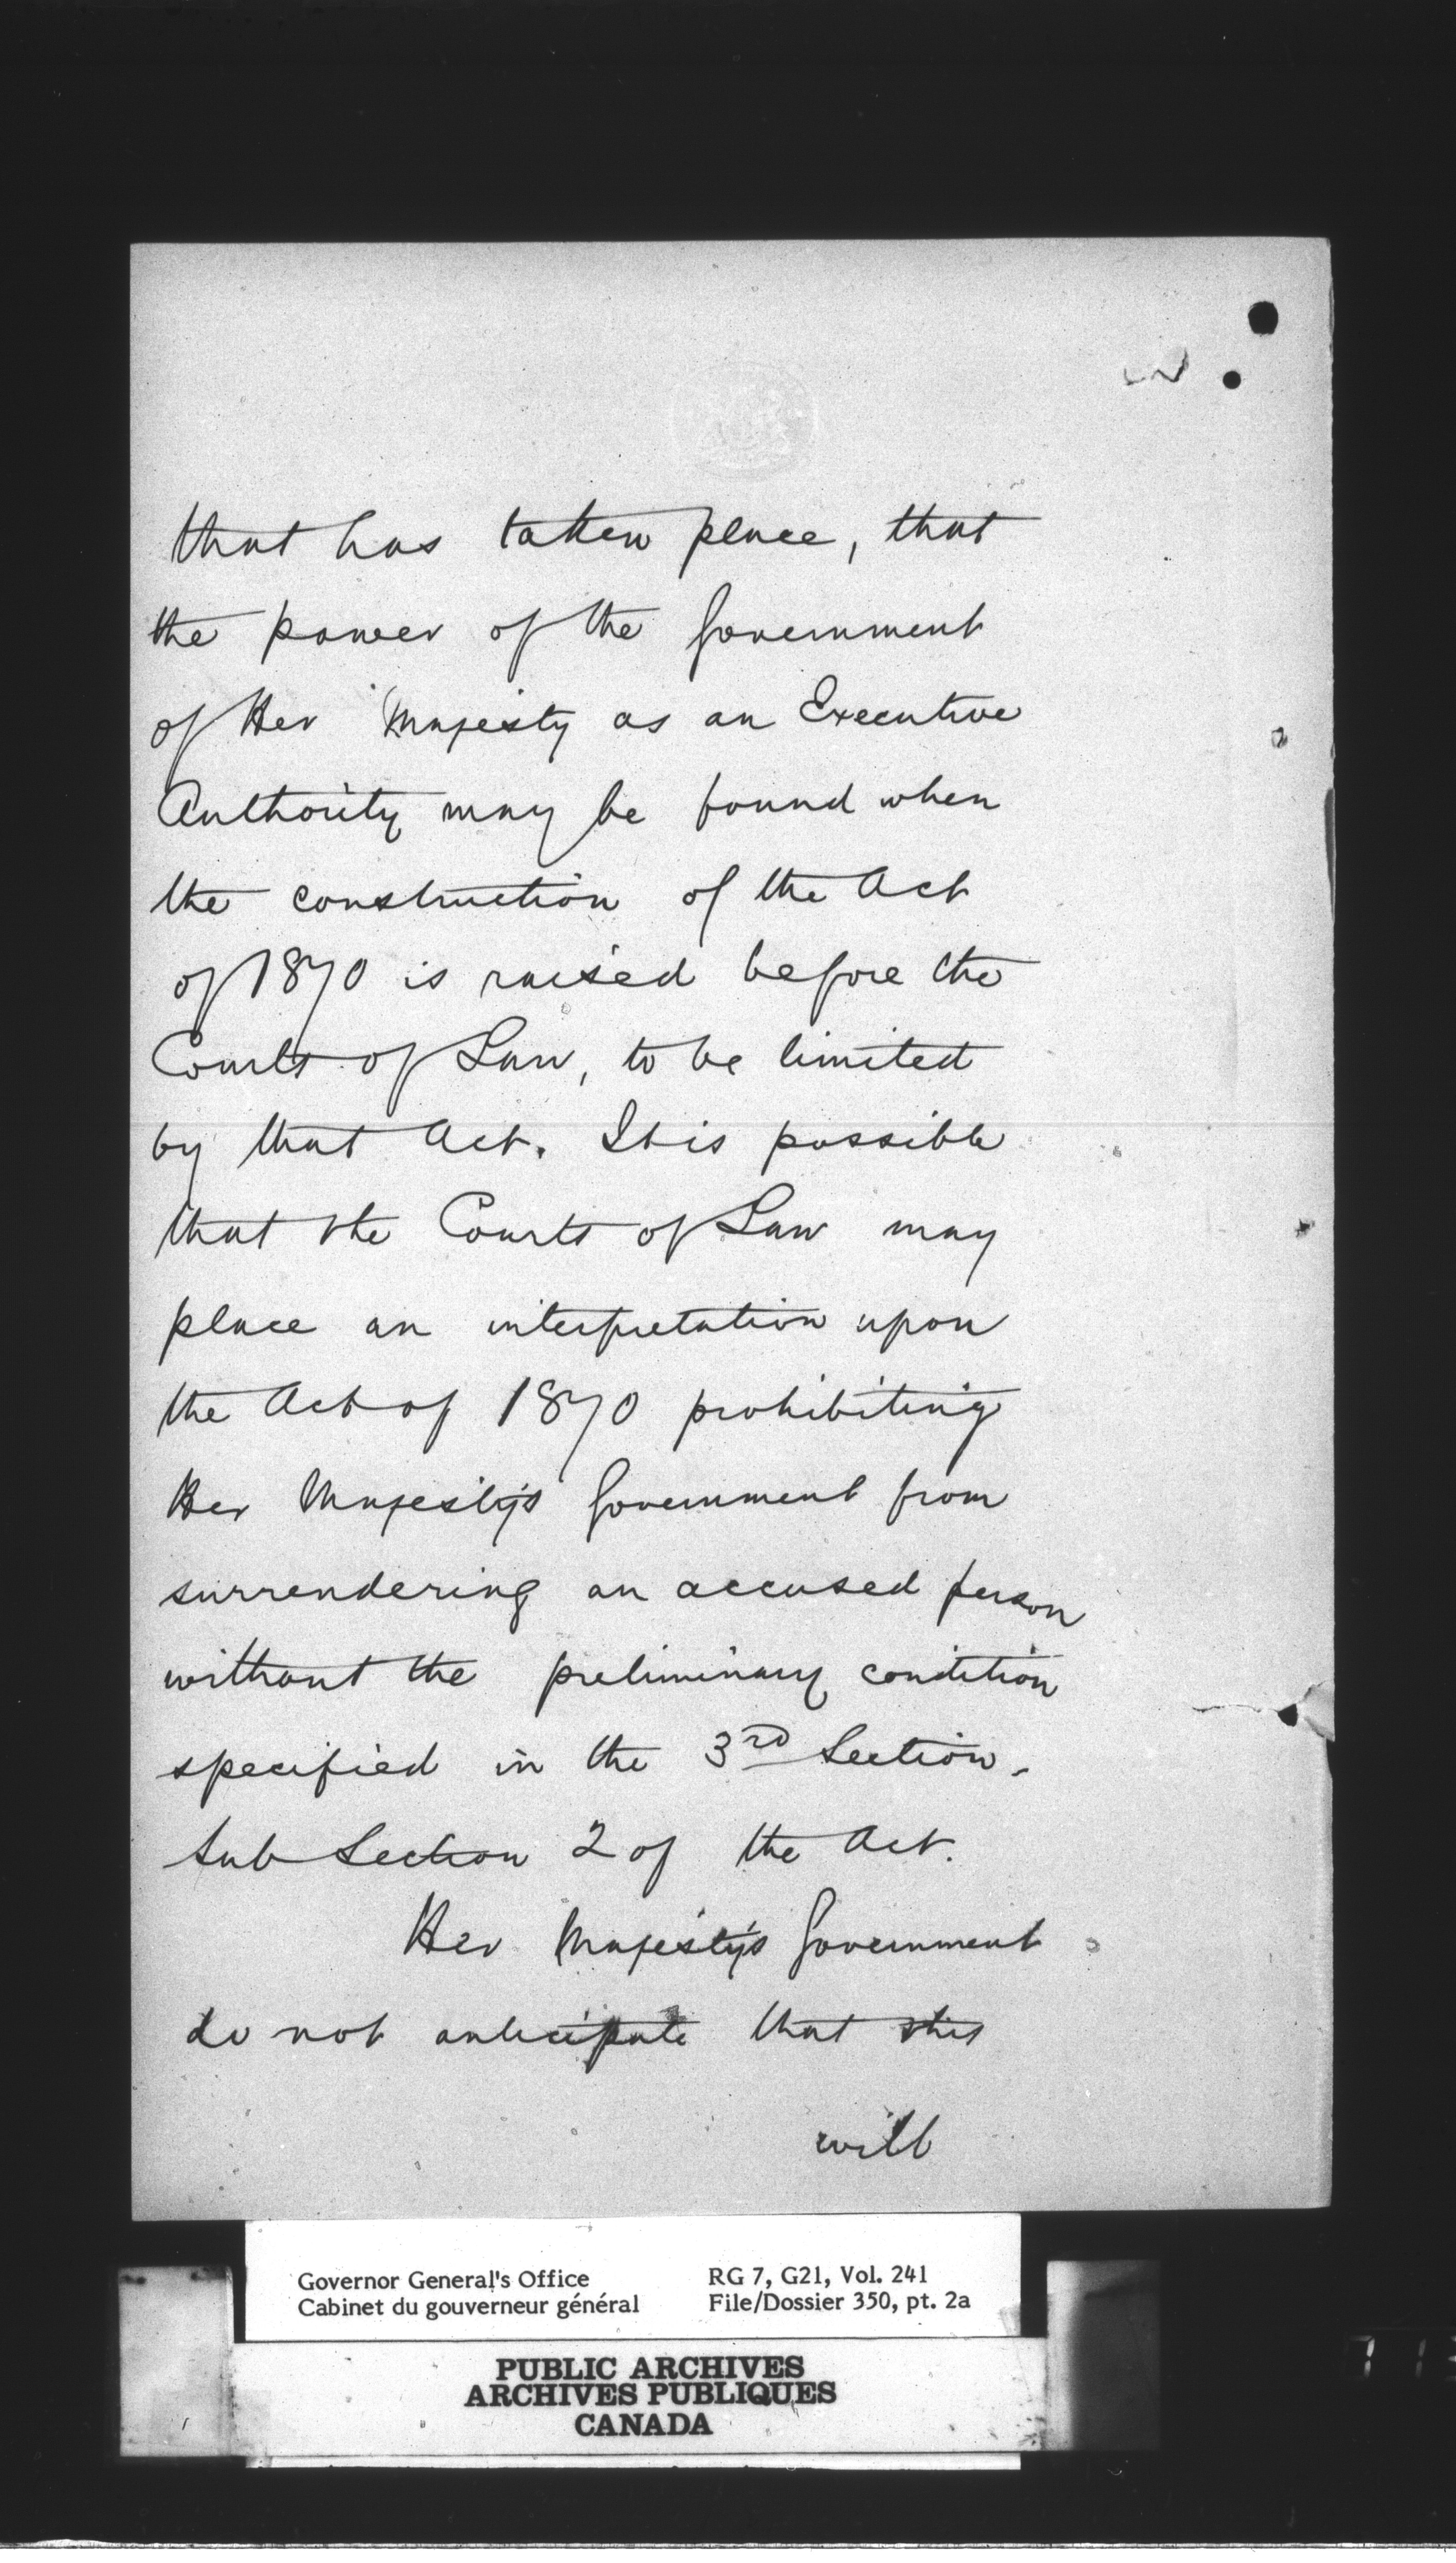 that has taken place, that
the power of the Government
of Her Majesty as an Executive
Authority may be found when
the construction of the Act
of 1870 is raised before the
Courts of Law, to be limited
by that Act. It is possible
that the Courts of Law may
place an interpretation upon
the Act of 1870 prohibiting
Her Majesty's Government from
surrendering an accused person
without the preliminary condition
specified in the 3rd Section.
Sub Section 2 of the Act.
Her Majesty's Government
do not anticipate that this
will
Governor General's Office RG 7, G21, Vol. 241
Cabinet du gouverneur général File/Dossier 350, pt. 2a
PUBLIC ARCHIVES
ARCHIVES PUBLIQUES
CANADA